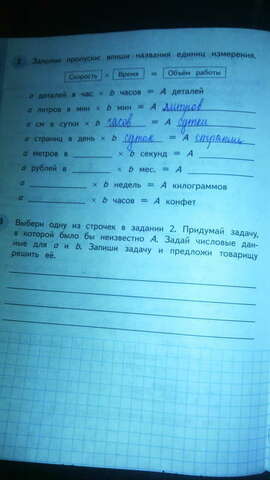 2 Заполни пропуски: впиши названия единиц измерения.
Скорость × Время = Объём работы
a деталей в час × b часов = A деталей
a литров в мин × b мин = A литров
a см в сутки × b часов = A сутки
a страниц в день × b суток = A страниц
a метров в ______ × b секунд = A ______
a рублей в ______ × b мес. = A ______
a ______ × b недель = A килограммов
a ______ × b часов = A конфет
3 Выбери одну из строчек в задании 2. Придумай задачу,
в которой было бы неизвестно A. Задай числовые дан-
ные для a и b. Запиши задачу и предложи товарищу
решить её.